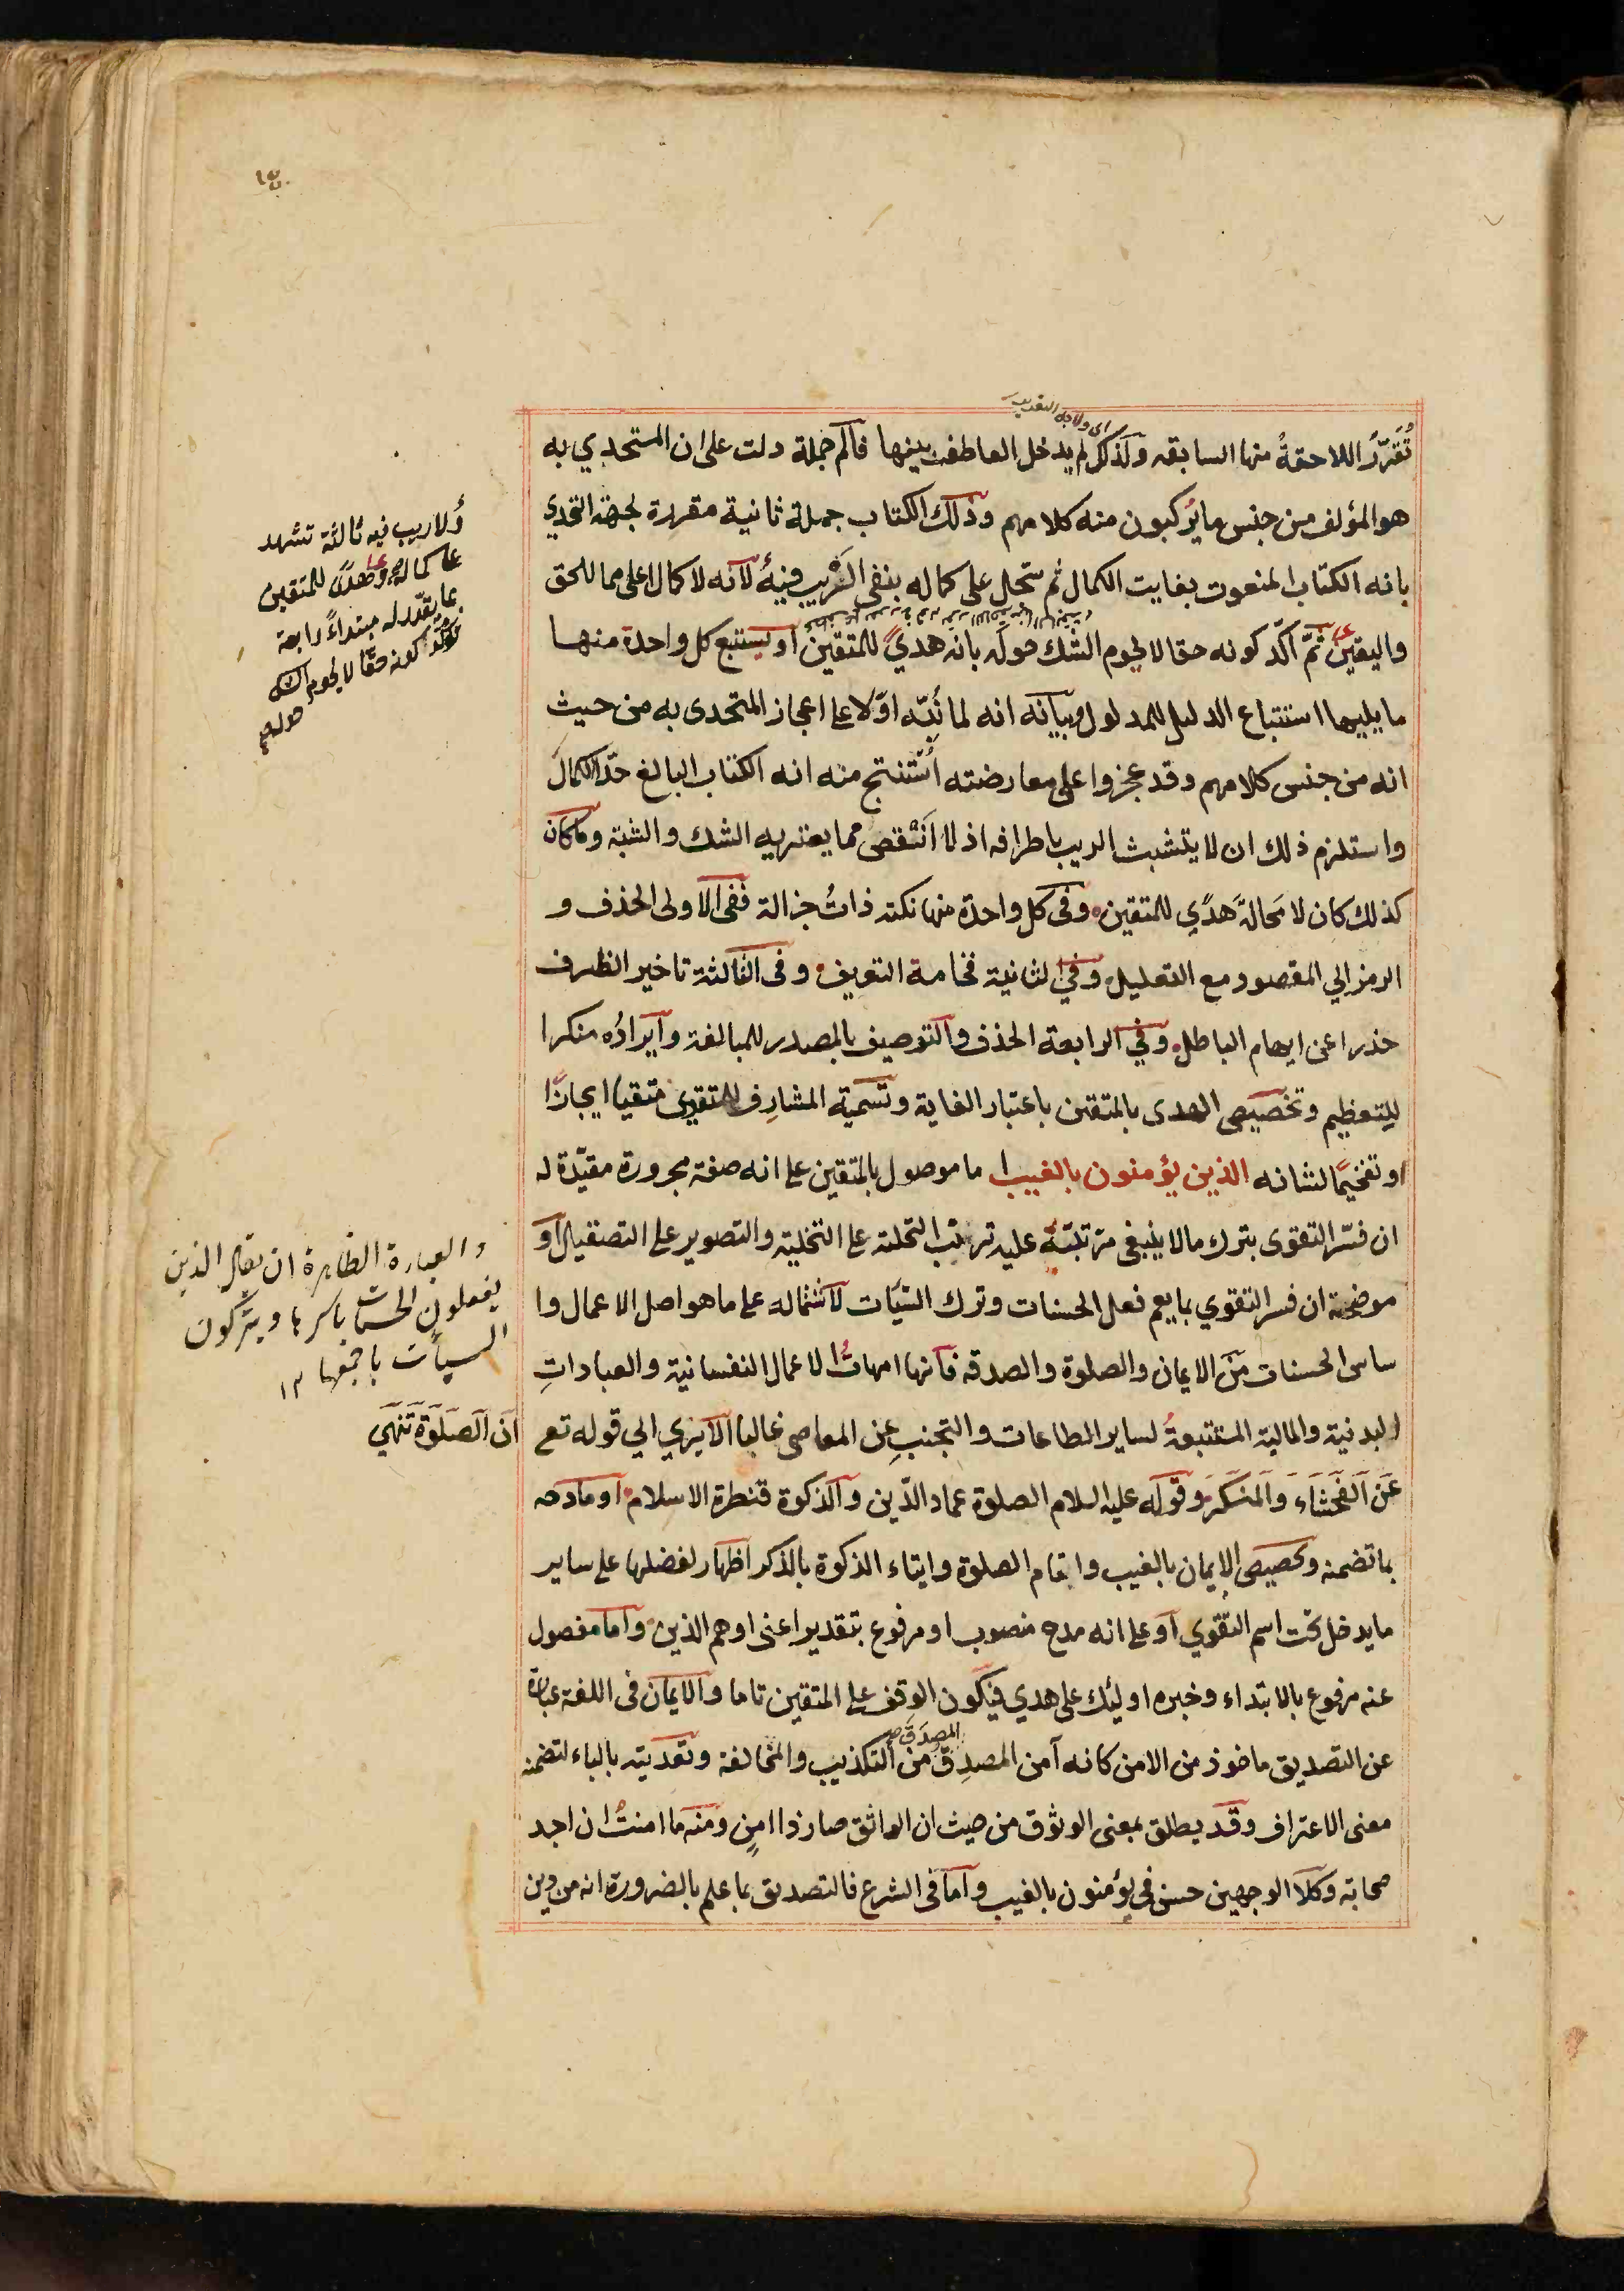 اى ولاجل التقرير
تُقَرِّرُ اللاحقةُ منها السابقه ولذلك لم يدخل العاطف بينها فآلم جملة دلت على ان المتحدي به
هو المؤلف من جنس ما يركبون منه كلامهم وذلك الكتاب جملة ثانية مقررة لجهة التحدي
بانه الكتاب المنعوت بغايت الكمال ثم سجل على كماله بنفى الريب فيه لانه لا كمال اعلى مما للحق
واليقين ثمّ اكّد كونه حقا لا يحوم الشك حوله بانه هديً للمتقين او يستتبع كل واحدة منها
ما يليها استتباع الدليل للمدلول وبيانه انه لما نُبّه اوّلا على اعجاز المتحدى به من حيث
انه من جنس كلامهم وقد عجزوا على معارضته اُستنتج منه انه الكتاب البالغ حدّ الكمال
واستلزم ذلك ان لا يتشبث الريب باطرافه اذ لا انقص مما يعتريه الشك والشبة وما كان
كذلك كان لا مَحالة هدًي للمتقين وفى كل واحدة منها نكتة ذاتُ جزالة ففى الاولى الحذف و
الرمز الي المقصود مع التعليل وفي الثانية فخامة التعريف وفى الثالثة تاخير الظرف
حذرا عن ايهام الباطل وفي الرابعة الحذف والتوصيف بالمصدر للمبالغة وايرادُه منكرا
للتعظيم وتخصيص الهدى بالمتقين باعتبار الغاية وتسمية المشارِف للتقوى متقيا ايجازًا
او تفخيمًا لشانه الذين يؤمنون بالغيب اما موصول بالمتقين على انه صفة مجرورة مقيّدة له
ان فسّر التقوى بترك ما لا ينبغى مترتبة عليه ترتّب التحلية على التخلية والتصوير على التصقيل او
موضحة ان فسر التقوي بما يعم فعل الحسنات وترك السيّات لاشتماله على ما هو اصل الاعمال وا
ساس الحسنات من الايمان والصلوة والصدقه فانها امهاتُ الاعمال النفسانية والعباداتِ
البدنية والمالية المستتبعةُ لساير الطاعات والتجنبِ عن المعاصى غالبا الا يري الي قوله تع
عَنِ الْفَحْشَاءِ وَالْمُنْكَرِ وقوله عليه السلام الصلوة عماد الدّين والزكوة قنطرة الاسلام او مادحه
بما تضمنه وتخصيص الايمان بالغيب واقام الصلوة وايتاء الزكوة بالذكر اظهار لفضلها على ساير
ما يدخل تحت اسم التقوي او على انه مدح منصوب او مرفوع بتقدير اعنى او هم الذين واما مفصول
عنه مرفوع بالابتداء وخبره اوليك على هدي فيكون الوقف على المتقين تاما والايمان فى اللغة عبارة
المصدَق
عن التصديق ماخوذ من الامن كانه آمن المصدِق من التكذيب والمخالفة وتعديته بالباء لتضمنه
معنى الاعتراف وقد يطلق بمعنى الوثوق من حيث ان الواثق صار ذا امنٍ ومنه ما امنتُ ان اجد
صحابة وكلا الوجهين حسن فى يؤمنون بالغيب واما فى الشرع فالتصديق بما علم بالضرورة انه من دين
ولا ريب فيه ثالثة تشهد
على كماله وهدًى للمتقين
بما يقدّر له مبتداءً رابعة
تؤكّد كونه حقّا لا يحوم الشك
حوله
والعبارة الظاهرة ان يقال الذين
يفعلون الحسنات باسرها ويتركون
السيأت باجمعها ١٢
اَنَّ الصَّلَوةَ تَنْهَى